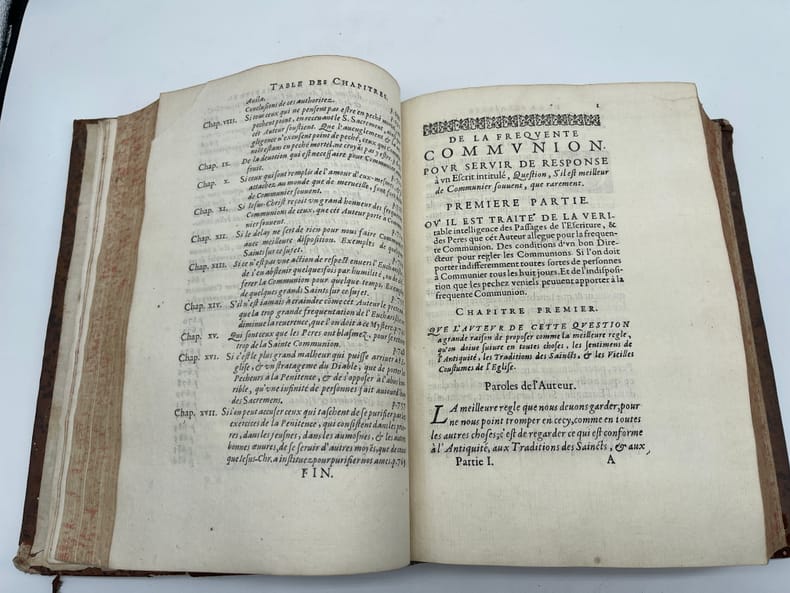 TABLE DES CHAPITRES.
Auila.
Conclusions de ces authoritez.
Chap. VIII. Si tous ceux qui ne pensent pas estre en peché mortel
pechent point, en receuant le S. Sacrement, ainsi
cét Auteur soustient. Que l'aueuglement & la
gligence n'excusent point de peché, ceux qui
estans en peché mortel, ne croyẽt pas y estre. p.
Chap. IX. De la deuotion qui est necessaire pour Commu
fruit.
Chap. X. Si ceux qui sont remplis de l'amour d'eux-mesmes,
attachez au monde que de merueille, font
de Communier souuent.
Chap. XI. Si Iesus-Christ reçoit vn grand honneur des
Communions de ceux, que cét Auteur porte à Com
nier souuent.
Chap. XII. Si le delay ne sert de rien pour nous faire Com
auec meilleure disposition. Exemples de
Saints sur ce sujet.
Chap. XIII. Si ce n'est pas vne action de respect enuers l'Eucha
de s'en abstenir quelquesfois par humilité, ou
ferer la Communion pour quelque temps. Ex
de quelques grands Saints sur ce sujet.
Chap. XIV. S'il n'est iamais à craindre cõme cét Auteur le
que la trop grande frequentation de l'Eucharistie
diminuë la reuerence, que l'on doit à ce Mystere. p.
Chap. XV. Qui sont ceux que les Peres ont blasmez, pour se
tirer de la Sainte Communion. p.
Chap. XVI. Si c'est le plus grand malheur qui puisse arriuer à l'E-
glise, & vn stratageme du Diable, que de porter
Pecheurs à la Penitence, & de s'opposer à l'abus
rible, qu'vne infinité de personnes fait auiourd
des Sacremens. p. 757
Chap. XVII. Si l'on peut accuser ceux qui taschent de se purifier par
exercices de la Penitence, qui consistent dans les
res, dans les jeusnes, dans les aumosnes, & les autres
bonnes œuures, de se seruir d'autres moyẽs, que de ceux
que Iesus-Chr. a instituez pour purifier nos ames. p. 763
FIN.
1
DE LA FREQVENTE
COMMVNION.
POVR SERVIR DE RESPONSE
à vn Escrit intitulé, Question, S'il est meilleur
de Communier souuent, que rarement.
PREMIERE PARTIE.
OV IL EST TRAITÉ DE LA VERI-
table intelligence des Passages de l'Escriture, &
des Peres que cét Auteur allegue pour la frequen-
te Communion. Des conditions d'vn bon Dire-
cteur pour regler les Communions. Si l'on doit
porter indifferemment toutes sortes de personnes
à Communier tous les huit jours. Et de l'indisposi-
tion que les pechez veniels peuuent apporter à la
frequente Communion.
CHAPITRE PREMIER.
QVE L'AVTEVR DE CETTE QVESTION
a grande raison de proposer comme la meilleure regle,
qu'on doiue suiure en toutes choses, les sentimens de
l'Antiquité, les Traditions des Saincts, & les Vieilles
Coustumes de l'Eglise.
Paroles de l'Auteur.
LA meilleure regle que nous deuons garder, pour
ne nous point tromper en cecy, comme en toutes
les autres choses; c'est de regarder ce qui est conforme
à l'Antiquité, aux Traditions des Saincts, & aux
Partie I. A